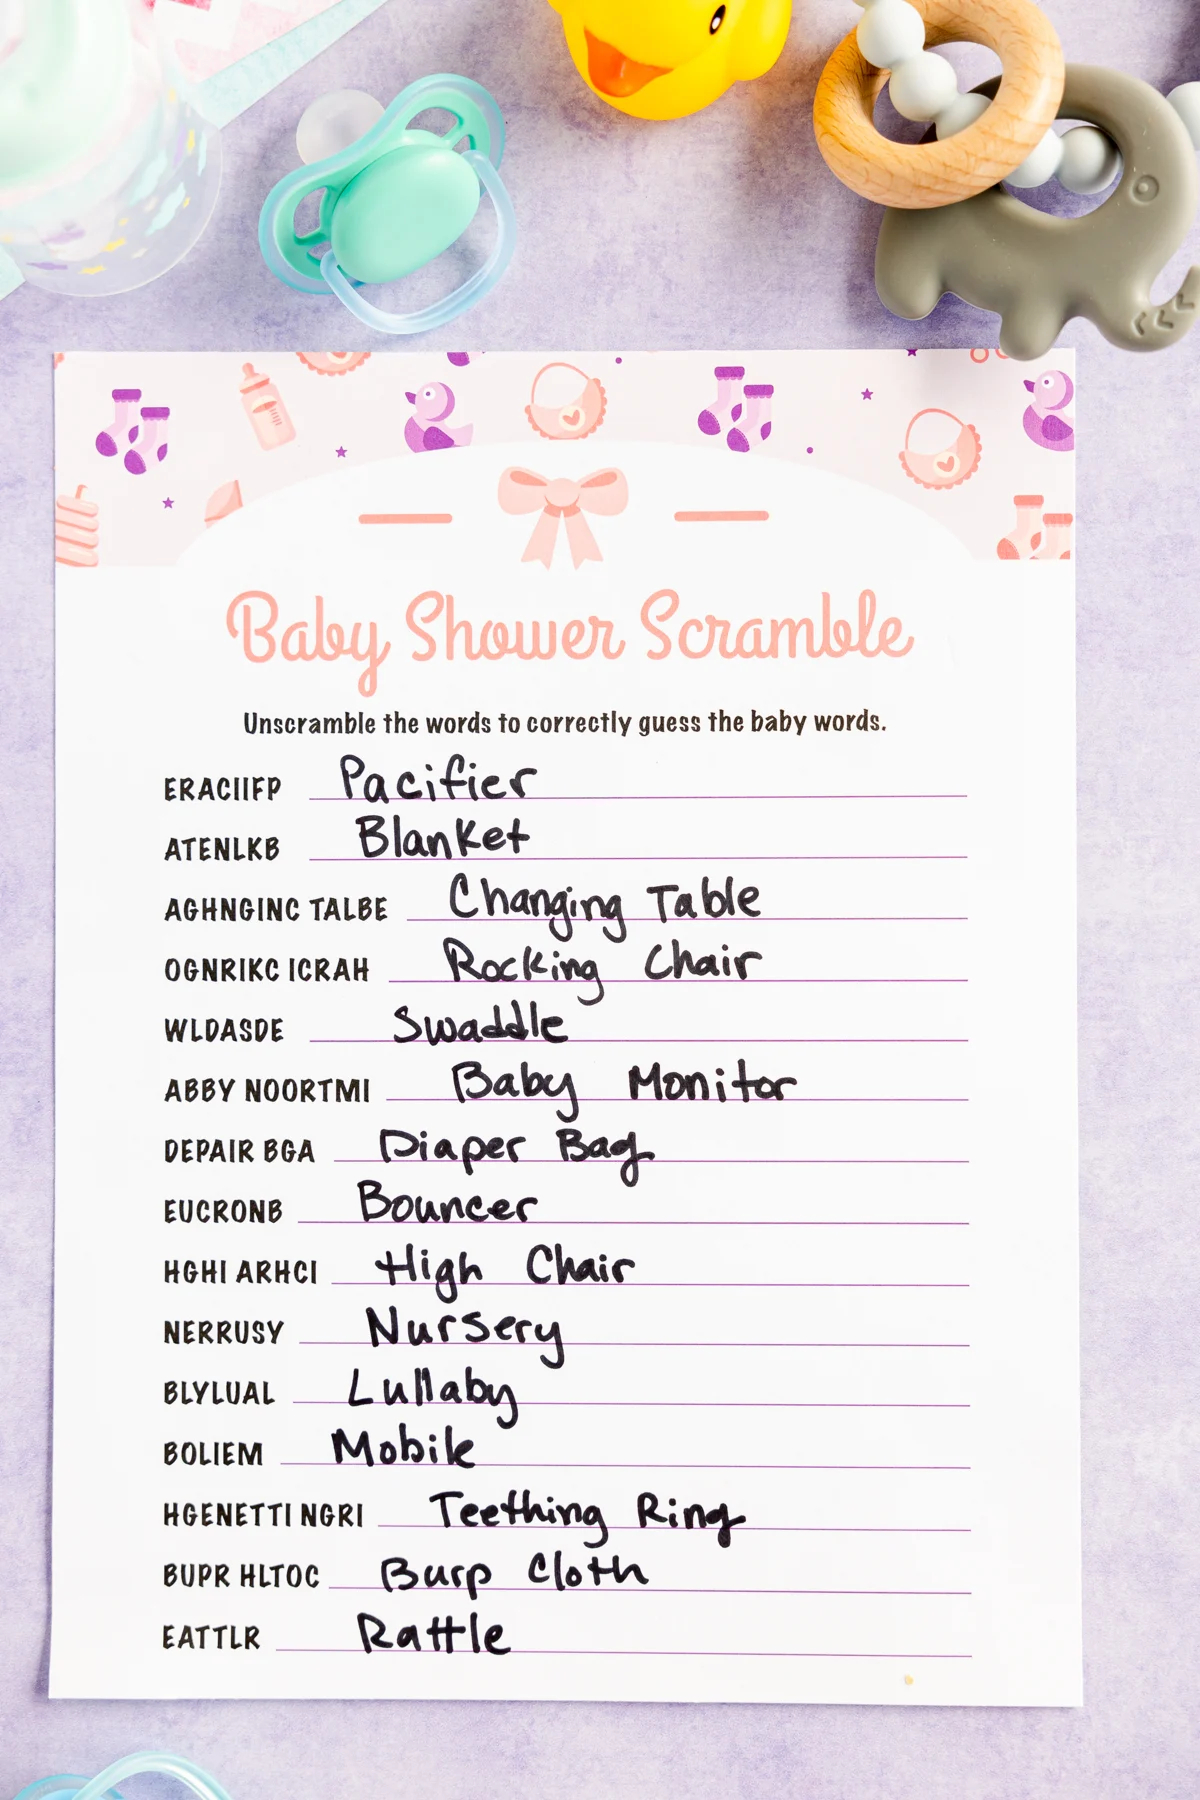 Baby Shower Scramble
Unscramble the words to correctly guess the baby words.
ERACIIFP Pacifier
ATENLKB Blanket
AGHNGINC TALBE Changing Table
OGNRIKC ICRAH Rocking Chair
WLDASDE Swaddle
ABBY NOORTMI Baby Monitor
DEPAIR BGA Diaper Bag
EUCRONB Bouncer
HGHI ARHCI High Chair
NERRUSY Nursery
BLYLUAL Lullaby
BOLIEM Mobile
HGENETTI NGRI Teething Ring
BUPR HLTOC Burp Cloth
EATTLR Rattle